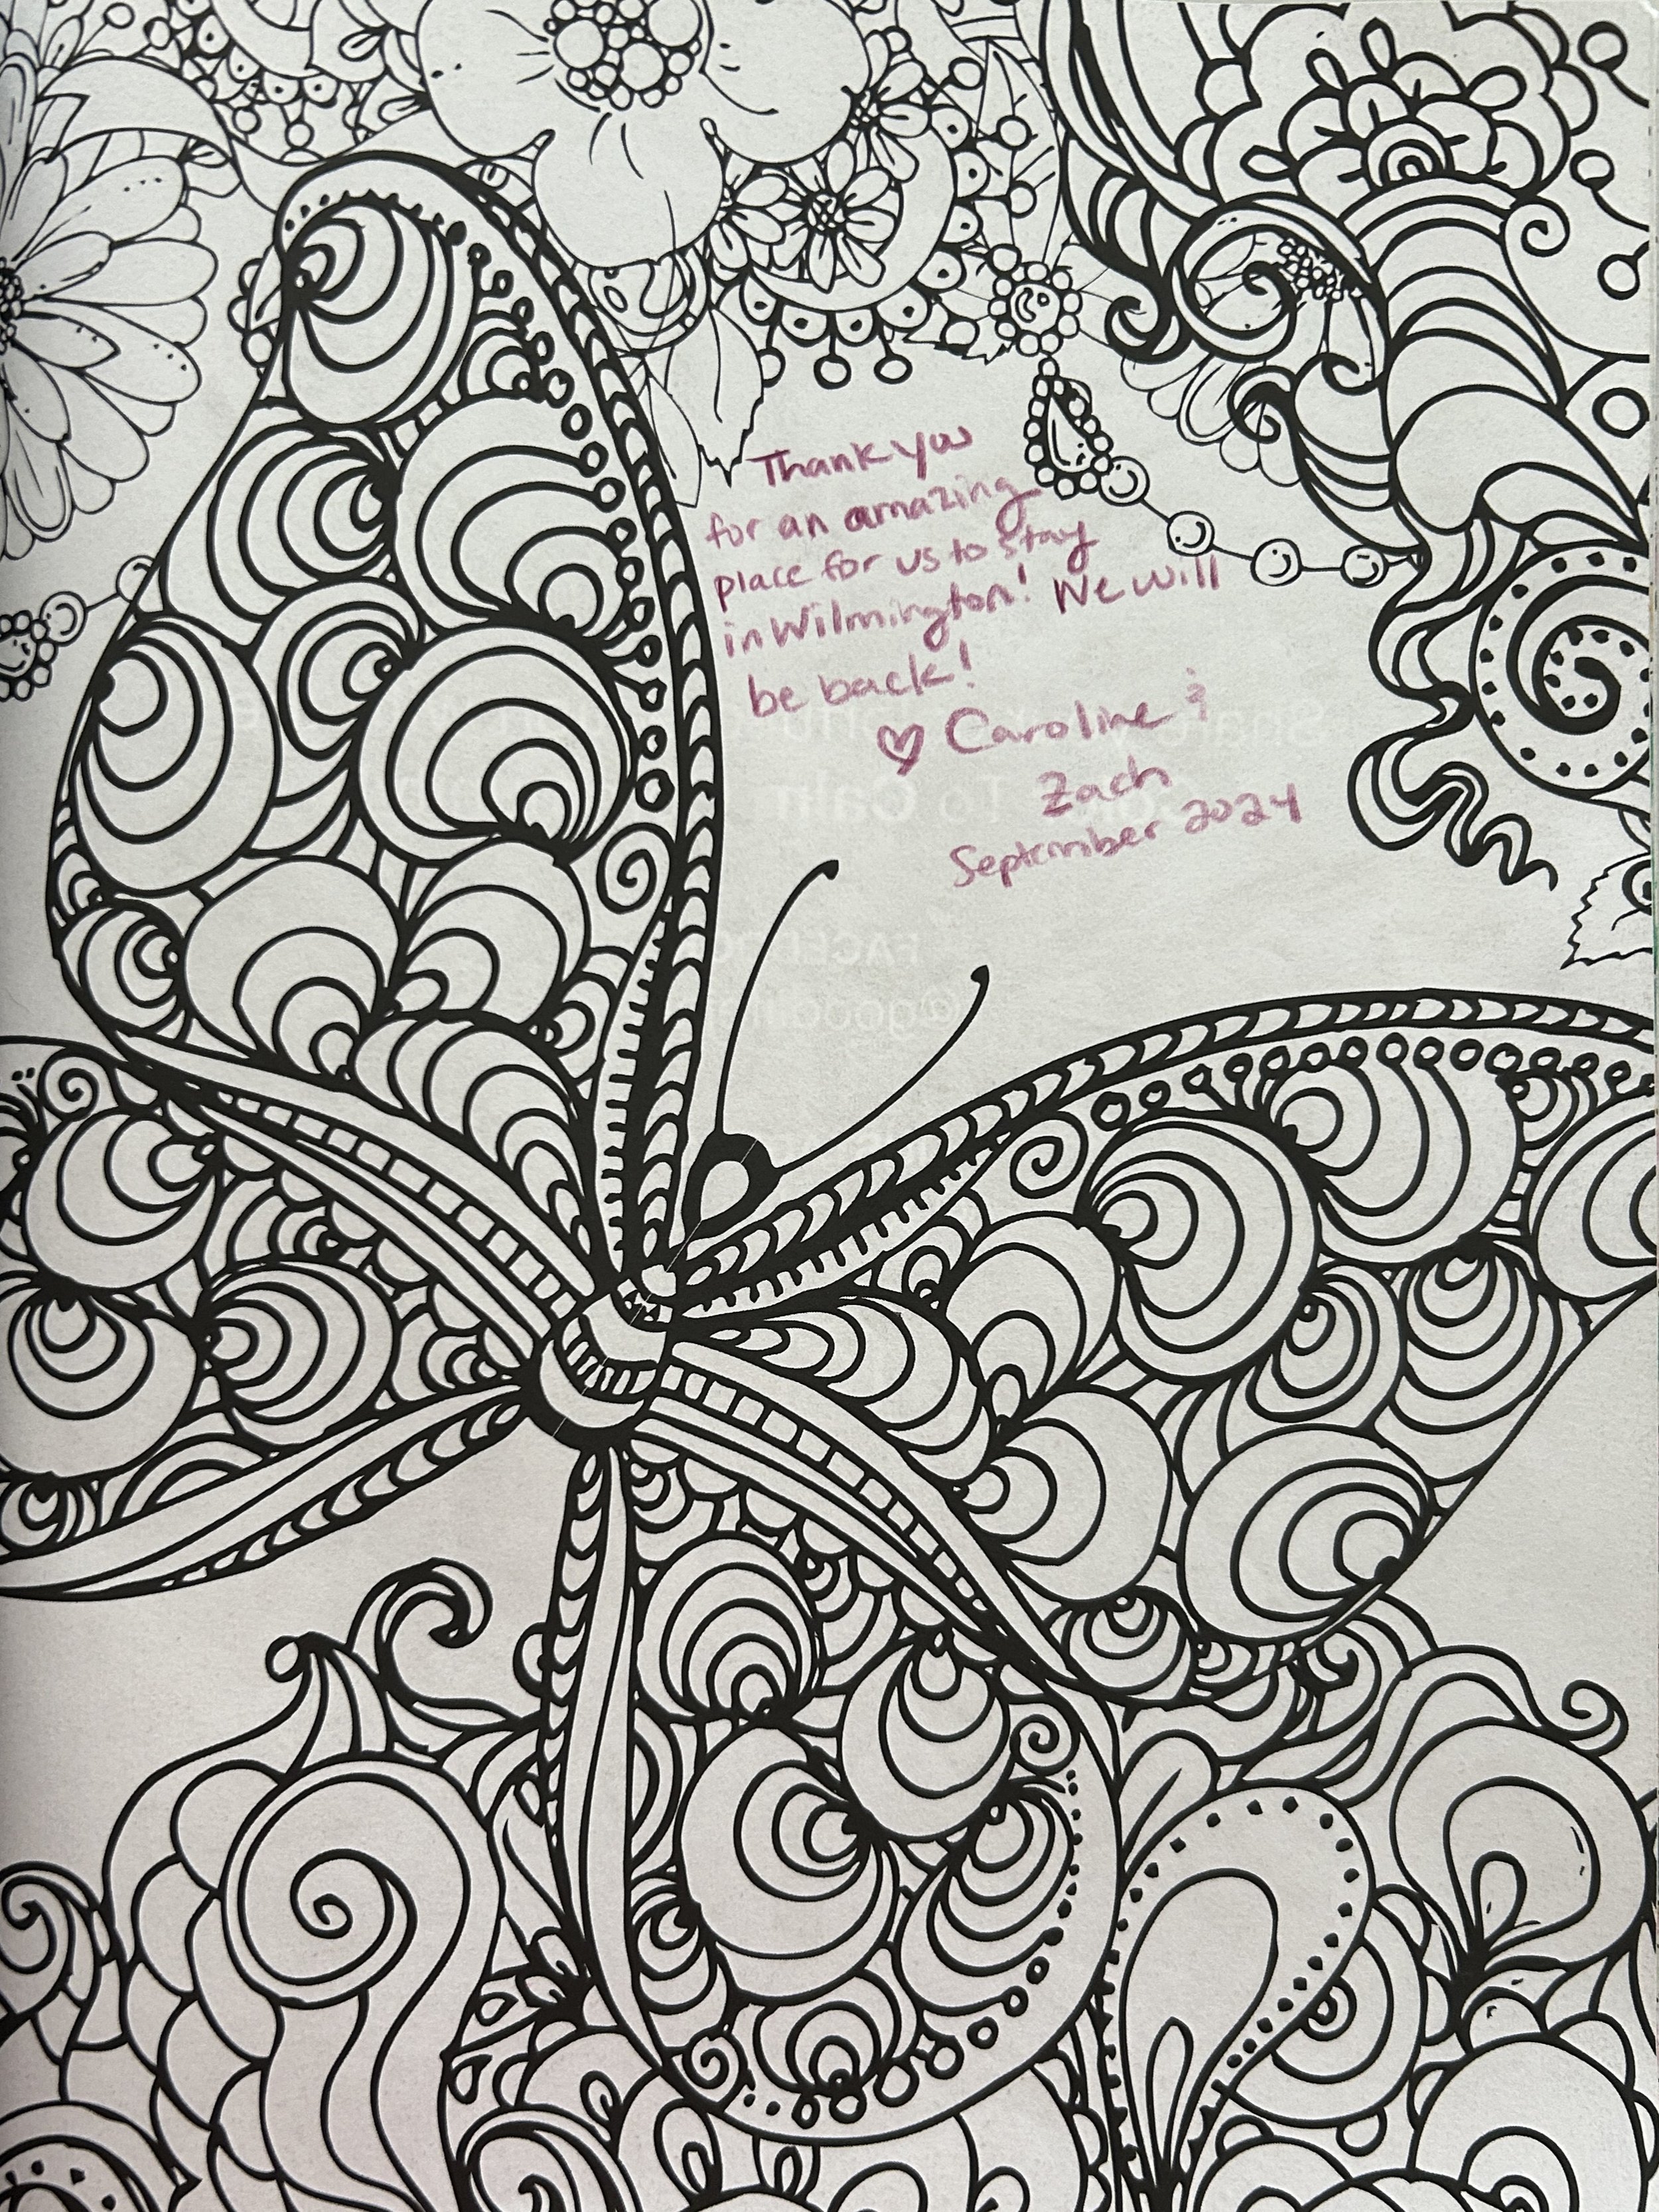 Thank you
for an amazing
place for us to stay
in Wilmington! We will
be back!
♡ Caroline &
Zach
September 2024